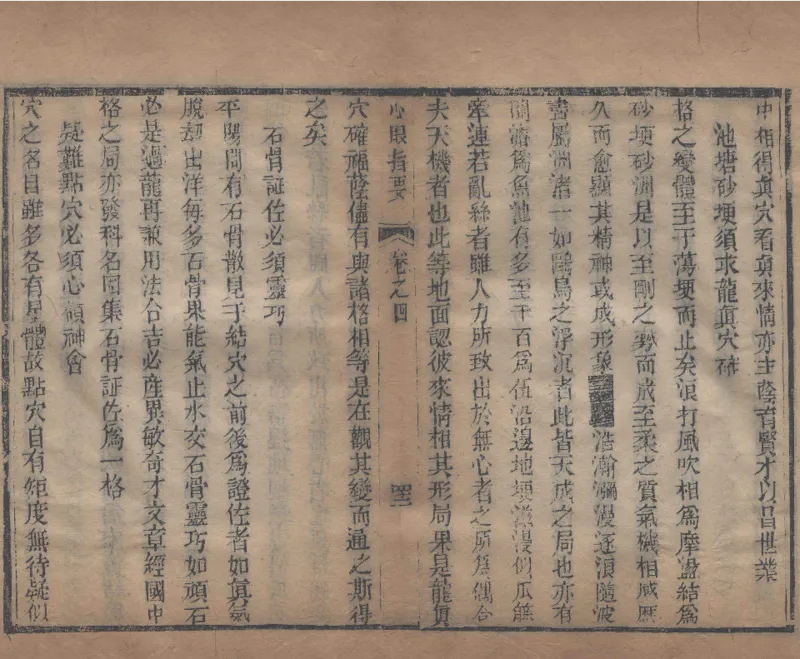 中相得眞穴看項來情亦主蔭育賢才以昌世業
池塘砂埂須求龍眞穴確
格之變體至于蕩埂而止矣浪打風吹相爲摩盪結爲
砂埂砂洲是以至剛之勢而成至柔之質氣機相感歷
久而愈顯其精神或成形象浩瀚瀰漫逐浪隨波
盡屬洲渚一如鷗鳥之浮沉者此皆天成之局也亦有
開濬爲魚池有多至千百爲伍沿邊地埂滋漫似瓜藤
牽連若亂絲者雖人力所致出於無心者之所爲偶合
夫天機者也此等地面認彼來情相其形局果是龍眞
心眼指要 卷之四
穴確福蔭儘有與諸格相等是在觀其變而通之斯得
之矣
石骨証佐必須靈巧
平陽間有石骨散見于結穴之前後爲證佐者如眞氣
脫刧出洋每多石骨果能氣止水交石骨靈巧如頑石
必是過龍再兼用法合吉必產異敏奇才文章經國中
格之局亦發科名因集石骨証佐爲一格
疑難點穴必須心領神會
穴之名目雖多各有星體故點穴自有矩度無待疑似